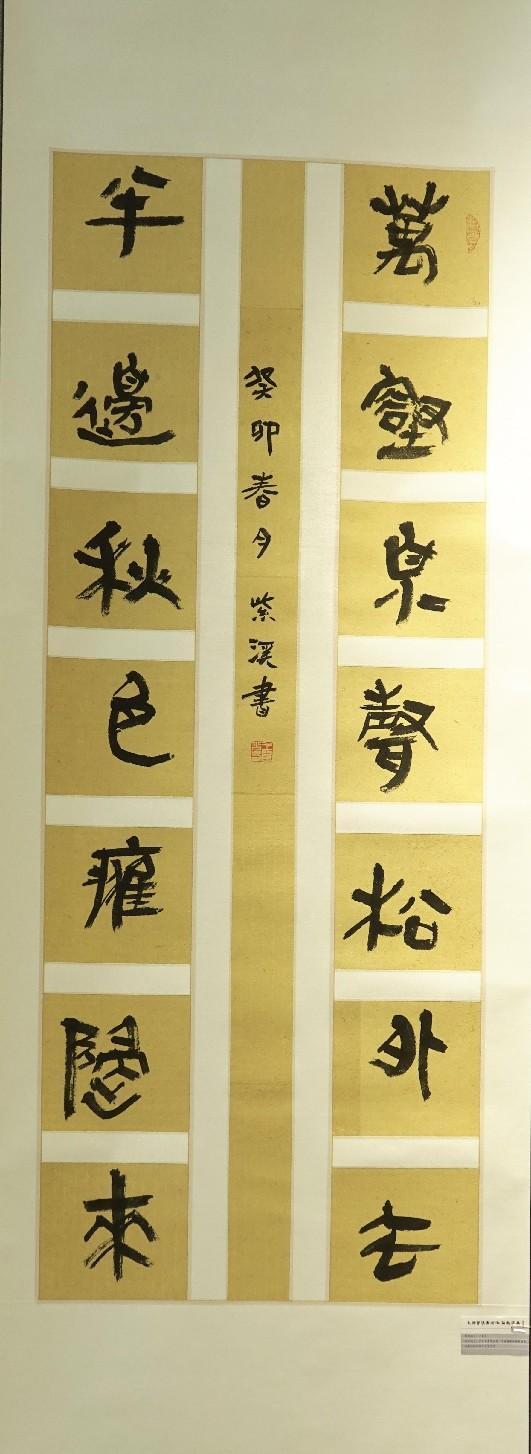 萬壑泉聲松外去
癸卯春月 紫溪書
半邊秋色隱來